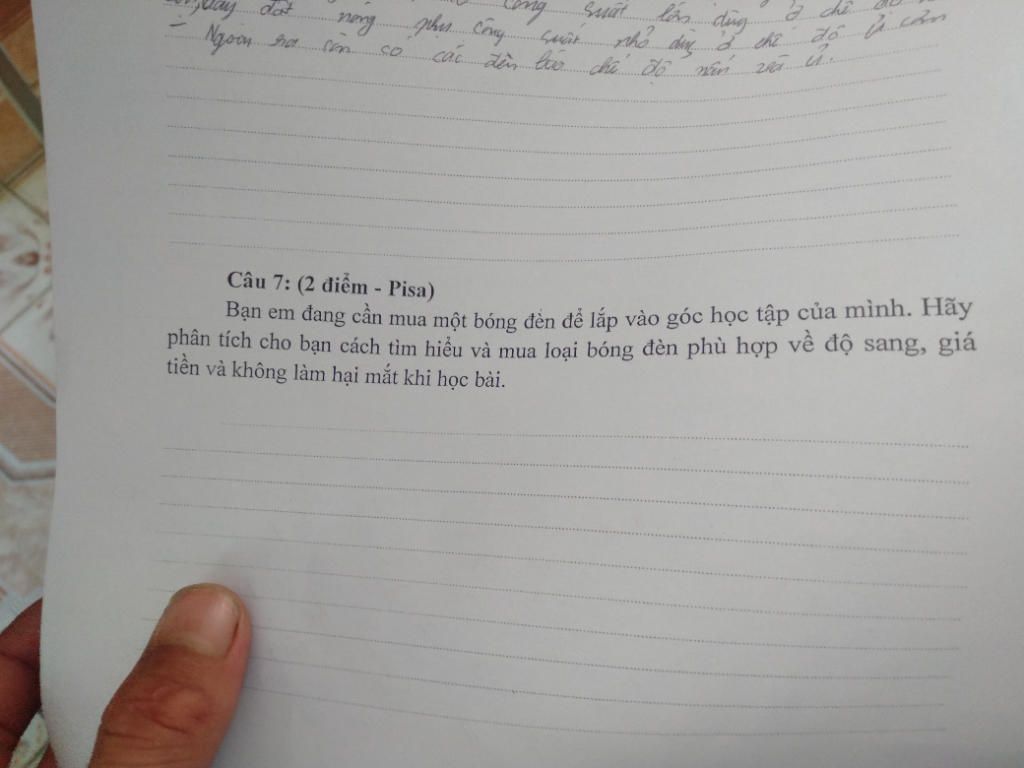 dây đốt nóng phụ công suất nhỏ dùng ở chế độ ủ cơm
- Ngoài ra còn có các đèn báo chế độ nấu và ủ.
Câu 7: (2 điểm - Pisa)
Bạn em đang cần mua một bóng đèn để lắp vào góc học tập của mình. Hãy
phân tích cho bạn cách tìm hiểu và mua loại bóng đèn phù hợp về độ sang, giá
tiền và không làm hại mắt khi học bài.